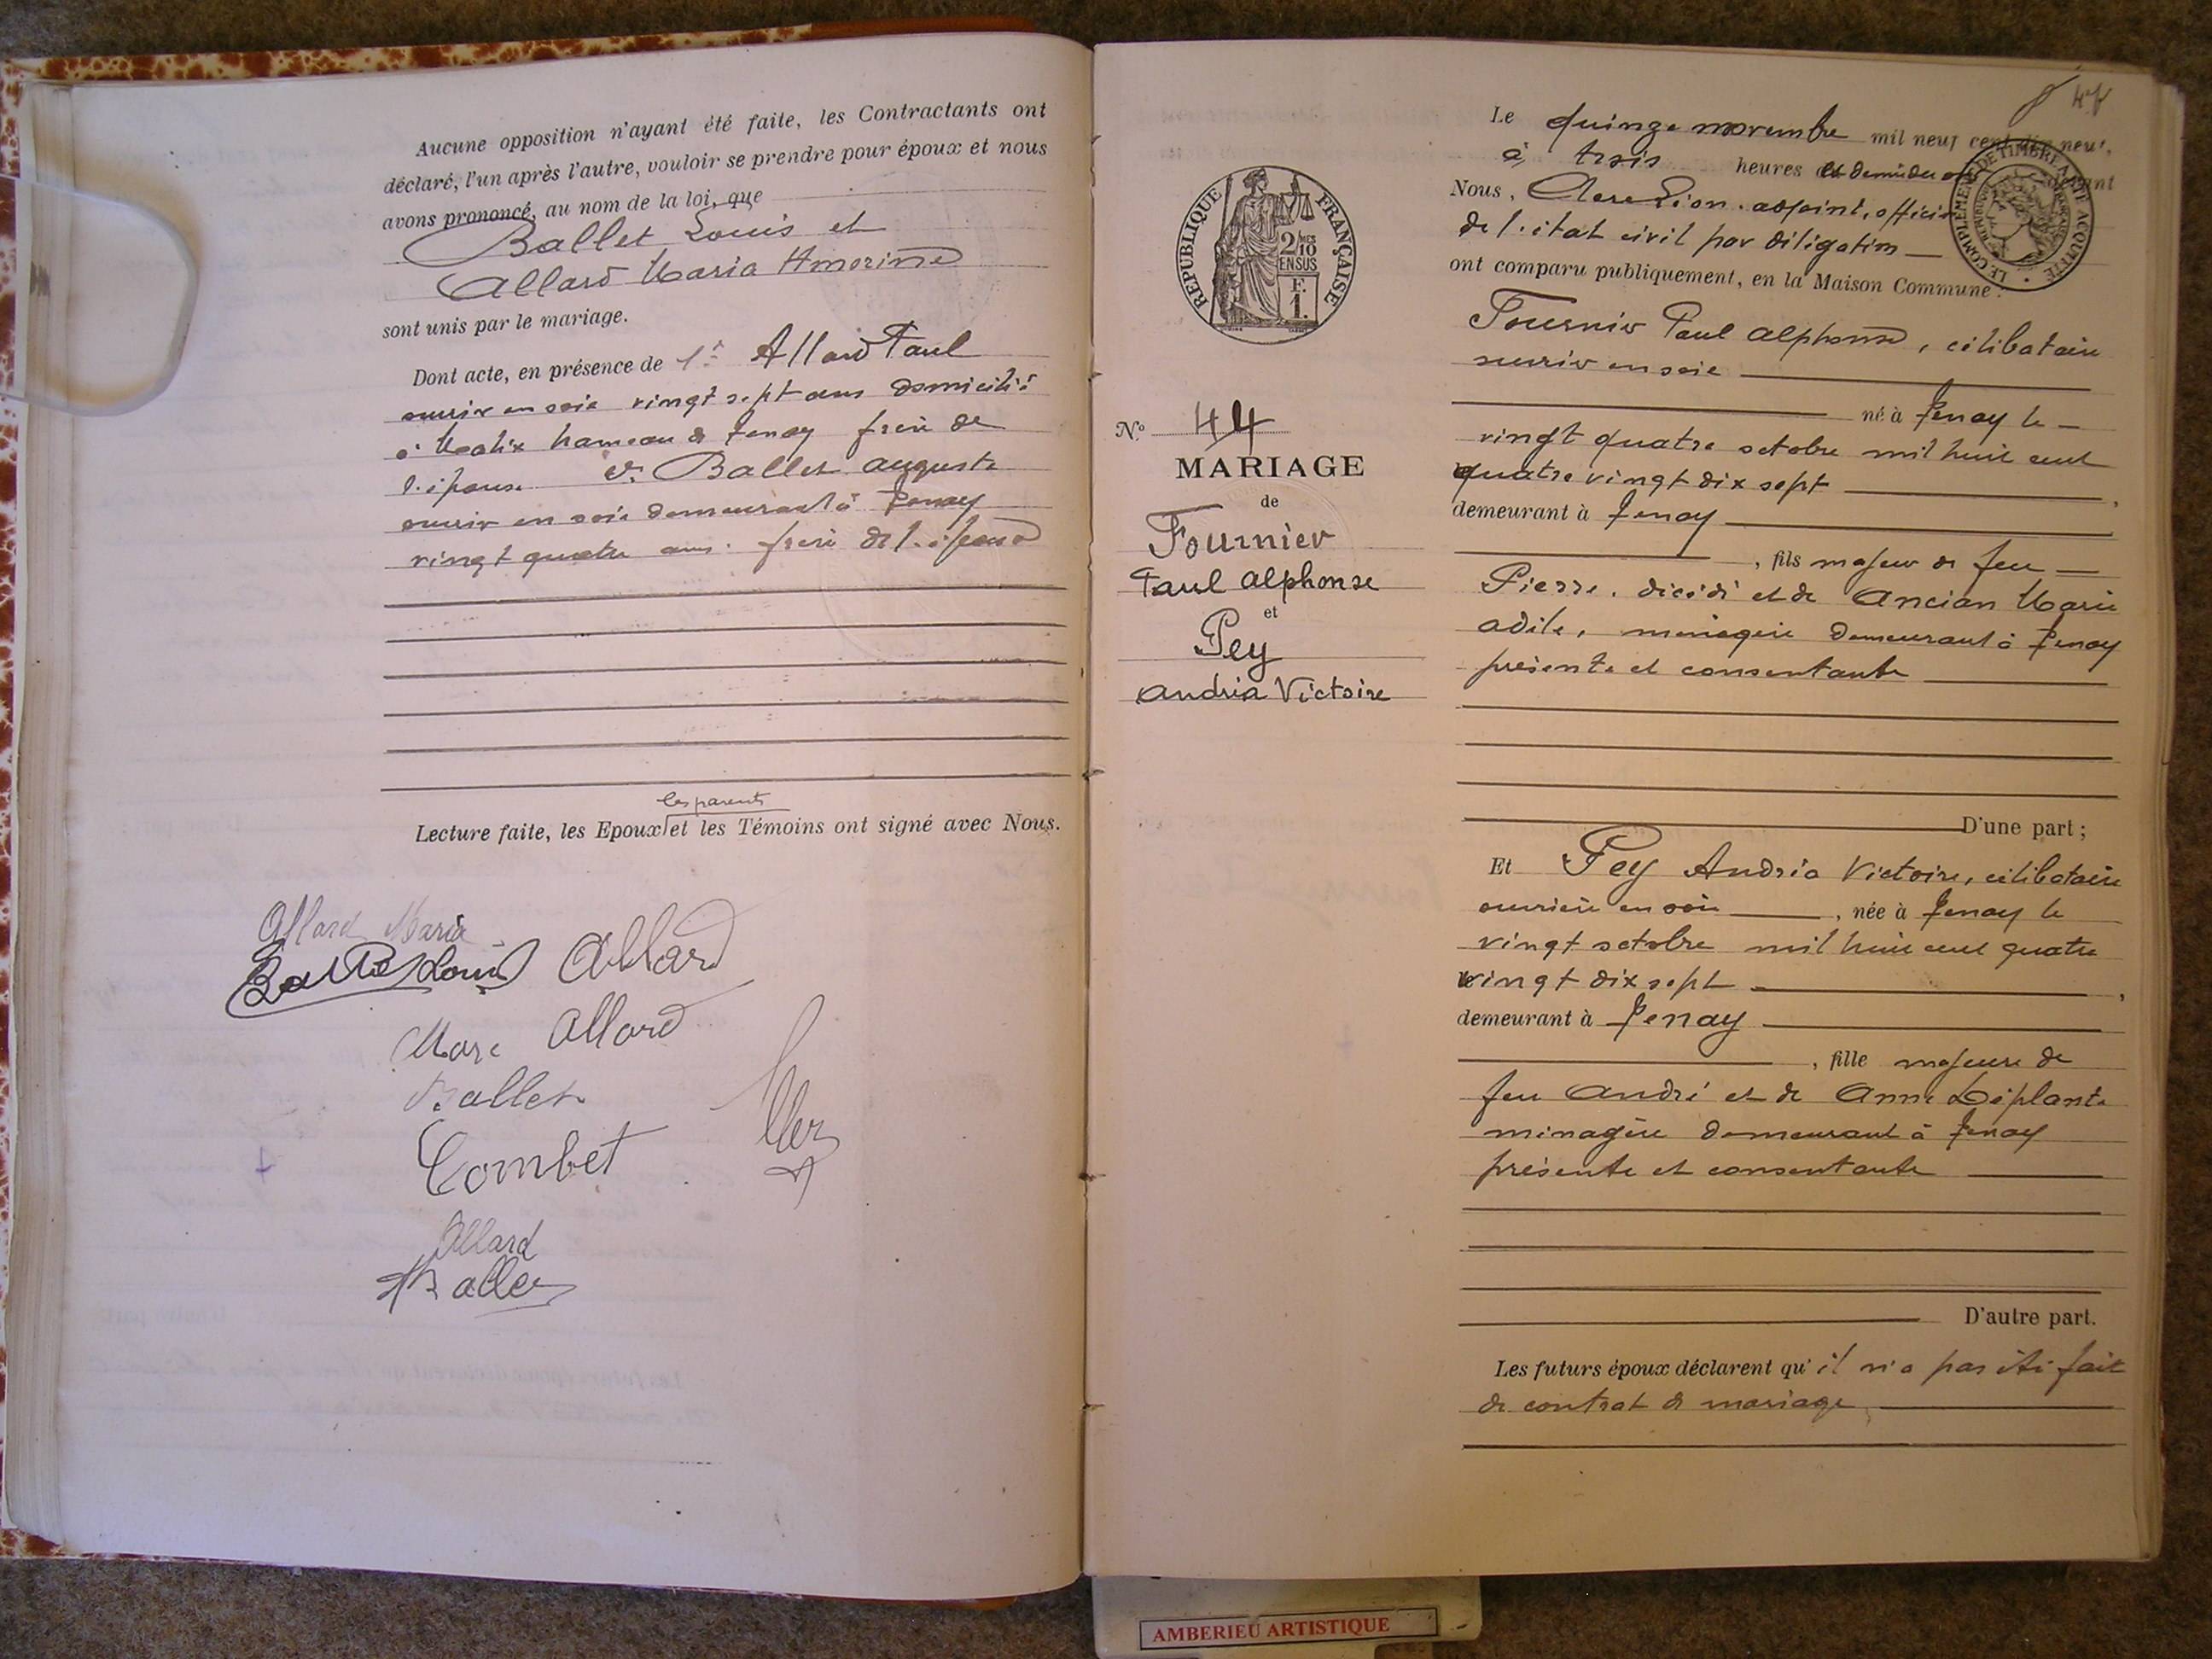 Aucune opposition n'ayant été faite, les Contractants ont
déclaré, l'un après l'autre, vouloir se prendre pour époux et nous
avons prononcé, au nom de la loi, que
Ballet Louis et
Allard Maria Amorine
sont unis par le mariage.
Dont acte, en présence de 1º Allard Paul
ouvrier en soie vingt sept ans domicilié
à hameau de Tenay frère de
l'épouse 2º Ballet Auguste
ouvrier en soie demeurant à Tenay
vingt quatre ans. frère de l'époux
les parents
Lecture faite, les Epoux et les Témoins ont signé avec Nous.
Allard Maria
Ballet Louis Allard
Marc Allard
Ballet
Combet
Allard
Ballet
47
RÉPUBLIQUE FRANÇAISE
2/10
EN SUS
F.
1.
Nº 44
MARIAGE
de
Fournier
Paul Alphonse
et
Pey
Andréa Victoire
Le quinze novembre mil neuf cent dix neuf,
à trois heures et demi du soir devant
Nous, Clerc Léon. adjoint, officier
de l'état civil par délégation
ont comparu publiquement, en la Maison Commune :
LE COMPLÉMENT DE TIMBRE A ÉTÉ ACQUITTÉ
Fournier Paul Alphonse, célibataire
ouvrier en soie
né à Tenay le
vingt quatre octobre mil huit cent
quatre vingt dix sept
demeurant à Tenay
, fils majeur de feu
Pierre, décédé et de Ancian Marie
Adèle, ménagère demeurant à Tenay
présente et consentante
D'une part ;
Et Pey Andréa Victoire, célibataire
ouvrière en soie , née à Tenay le
vingt octobre mil huit cent quatre
vingt dix sept ,
demeurant à Tenay
, fille majeure de
feu André et de Anne Déplante
ménagère demeurant à Tenay
présente et consentante
D'autre part.
Les futurs époux déclarent qu'il n'a pas été fait
de contrat de mariage
AMBERIEU ARTISTIQUE